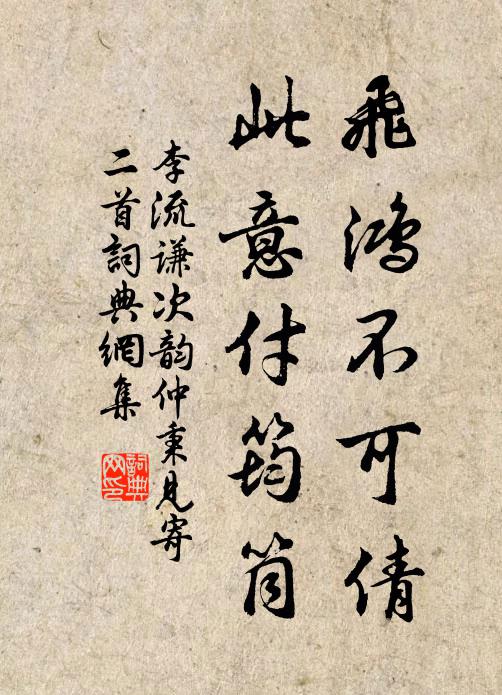 飛鴻不可倩
此意付筠筒
李流謙次韵仲秉見寄
二首詞典網集
詞典
網印